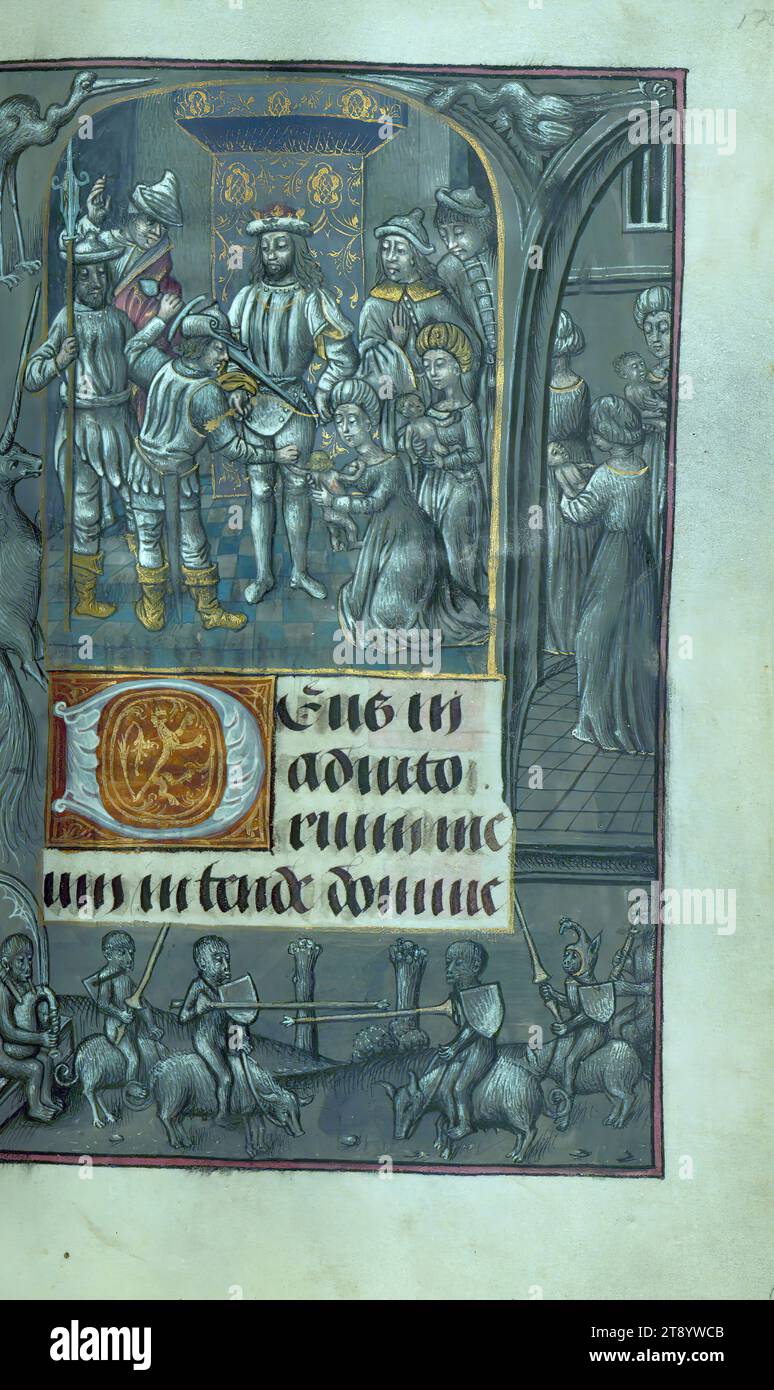 Deus in
adiuto
rium me
um intende domine
alamy
Image ID: 2T8YWCB
www.alamy.com